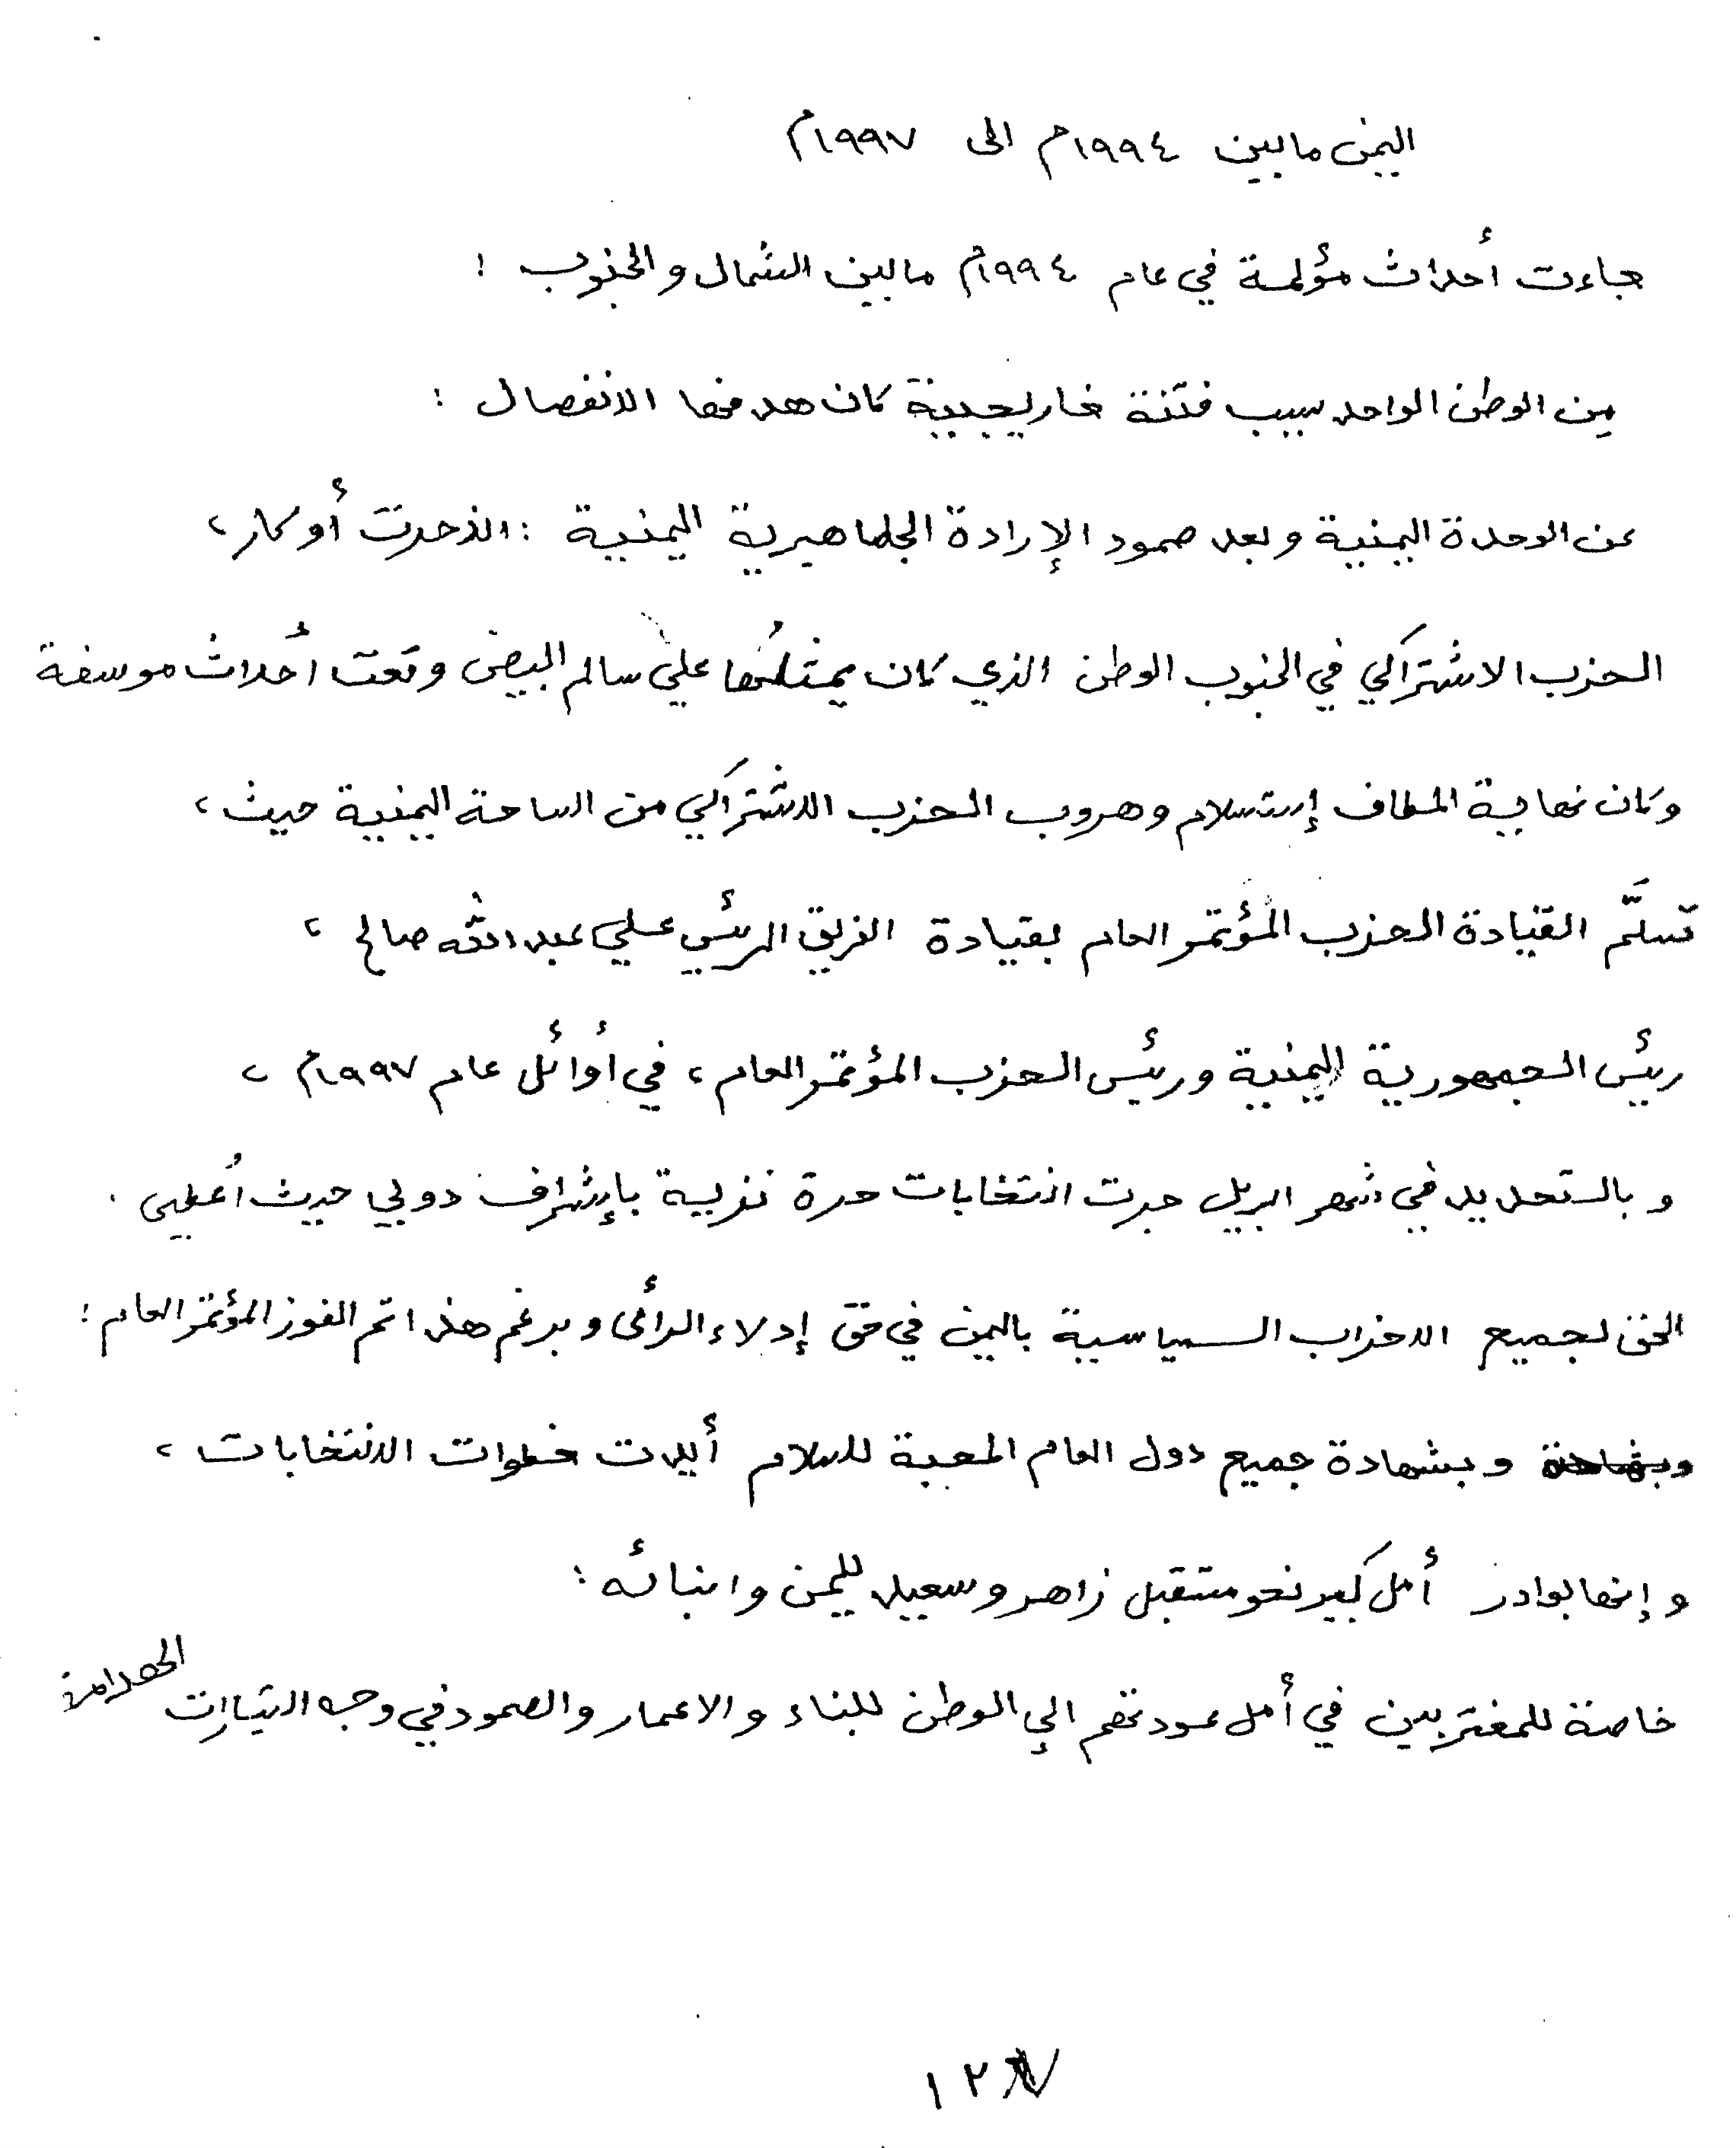 اليمن مابين ١٩٩٤م الى ١٩٩٧م
جاءت أحداث مؤلمة في عام ١٩٩٤م مابين الشمال والجنوب :
من الوطن الواحد بسبب فتنة خاريجيية كان هدفها الانفصال :
عن الوحدة اليمنية وبعد صمود الإرادة الجماهيرية اليمنية : اندحرت أوكار ،
الحزب الاشتراكي في الجنوب الوطن الذي كان يمثلها علي سالم البيض وقعت أحداث موسفة
وكان نهاية المطاف إستسلام وهروب الحزب الاشتراكي من الساحة اليمنية حيث ،
تسلَّم القيادة الحزب المؤتمر العام بقيادة الفريق الرئيس علي عبد الله صالح ،
رئيس الجمهورية اليمنية ورئيس الحزب المؤتمر العام ، في أوائل عام ١٩٩٧م ،
وبالتحديد في شهر ابريل جرت انتخابات حرة نزيهة بإشراف دولي حيث أُعطي .
الحق لجميع الاحزاب السياسية باليمن في حق إدلاء الرأى وبرغم هذا تم الفوز المؤتمر العام :
وبشهادة جميع دول العام المحبة للسلام أيدت خطوات الانتخابات ،
و إنها بوادر أمل كبير نحو مستقبل زاهر وسعيد لليمن وابنائه :
خاصة للمغتربين في أمل عودتهم إلى الوطن للبناء والاعمار والصمود في وجه التيارات الهدامة